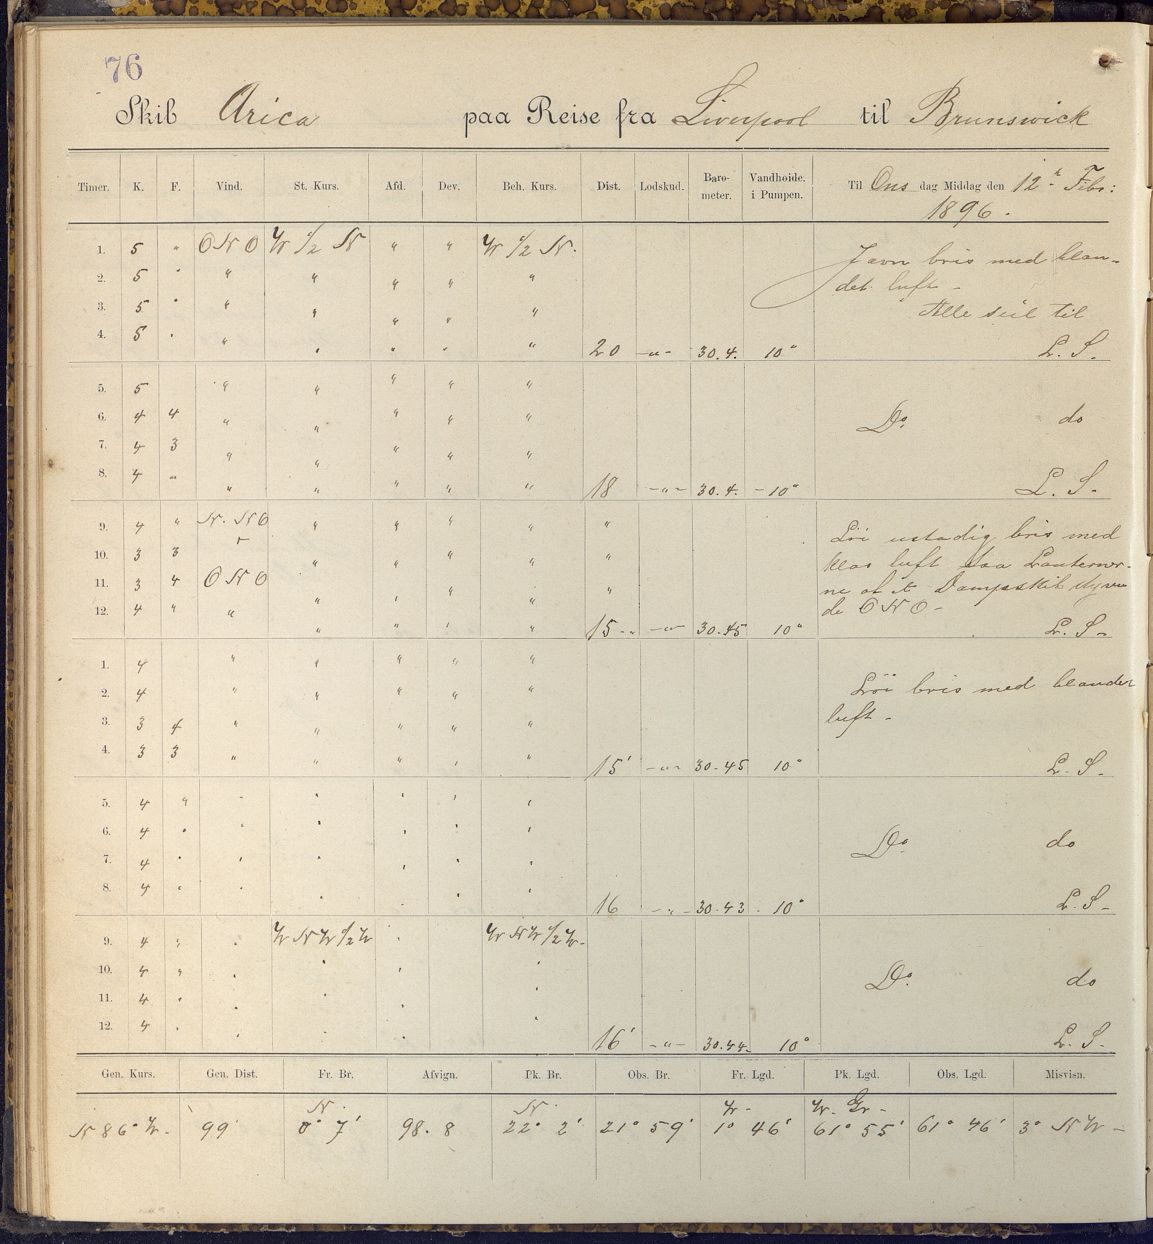 76
Skib Arica paa Reise fra Liverpool til Brunswick
Timer. K. F. Vind. St. Kurs. Afd. Dev. Beh. Kurs. Dist. Lodskud. Baro-meter. Vandhøide. i Pumpen. Til Ons dag Middag den 12te Febr: 1896.
1. 5 " ONO W 1/2 N " " W 1/2 N. Javn bris med blan-
2. 5 " " " " " " det luft -
3. 5 " " " " " " Alle seil til
4. 5 " " " " " " 20 -"- 30.4. 10" L. S.
5. 5 " " " " "
6. 4 4 " " " " " Do. do
7. 4 3 " " " " "
8. 4 " " " " " " 18 -"- 30.4. - 10" L. S.
9. 4 " N. NO " " " " " Løi ustadig bris med
10. 3 3 " " " " " klar luft Saa Lanterner-
11. 3 4 ONO " " " " " ne af et Dampskib styren
12. 4 " " " " " " 15 -"- 30.45 10" de ONO - L. S.
1. 4 " " " " "
2. 4 " " " " " Løi bris med blandet
3. 3 4 " " " " " luft -
4. 3 3 " " " " " 15' -"- 30.45 10" L. S.
5. 4 " " " " " "
6. 4 " " " " " " Do. do
7. 4 " " " " " "
8. 4 " " " " " " 16 -"- 30.43 10" L. S.
9. 4 " " WNW 1/2 W " WNW 1/2 W.
10. 4 " " " " " Do. do
11. 4 " " " " "
12. 4 " " " " 16' -"- 30.44 10" L. S.
Gen. Kurs. Gen. Dist. Fr. Br. Afvign. Pk. Br. Obs. Br. Fr. Lgd. Pk. Lgd. Obs. Lgd. Misvisn.
N 86° W. 99' N. 0° 7' 98.8 N. 22° 2' 21° 59' W. 1° 46' W. Gr. 61° 55' 61° 46' 3° NW -